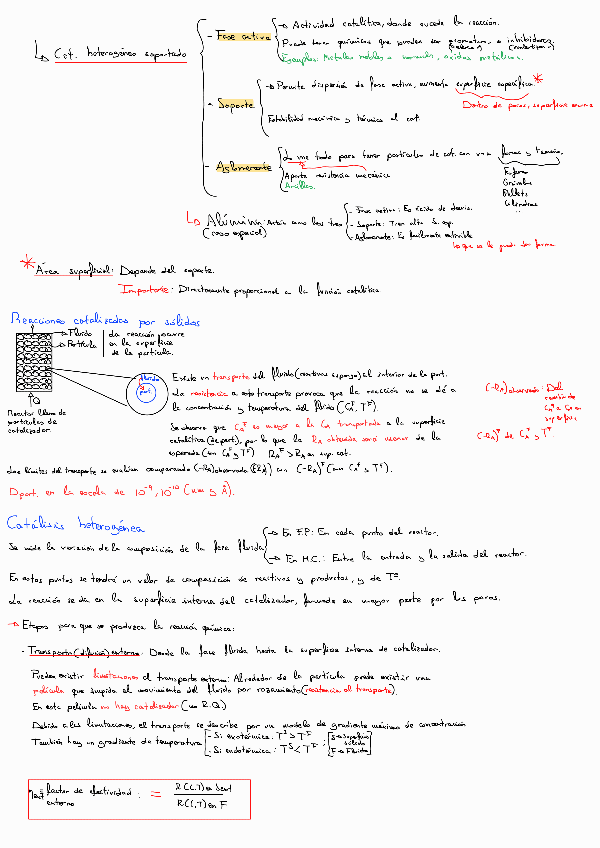 ↳ Cat. heterogéneo soportado
- Fase activa
→ Actividad catalítica, donde sucede la reacción.
Puede tener químicos que pueden ser promotores o inhibidores
Ejemplos: Metales nobles o normales, óxidos metálicos.
- Soporte
→ Permite dispersión de fase activa, aumenta superficie específica *
Dentro de poros, superficie enorme
Estabilidad mecánica y térmica al cat.
- Aglomerante
para tener partículas de cat. con una forma y tamaño.
Aporta resistencia mecánica
Arcillas.
Esferas
Pellets
Cilindros
↳ Alúmina: Actúa como los tres
(caso especial)
- Fase activa: Es ácido de
- Soporte: Tiene alta S. esp.
- Aglomerante: Es fácilmente extruible
lo que se le puede dar forma
* Área superficial: Depende del soporte.
Importante: Directamente proporcional a la función catalítica
Reacciones catalizadas por sólidos
→ Fluido
→ Partícula
La reacción ocurre
en la superficie
de la partícula.
Reactor lleno de
partículas de
catalizador.
fluido
part.
Existe un transporte del fluido (reactivos supongo) al interior de la part.
La resistencia a este transporte provoca que la reacción no se dé a
la concentración y temperatura del fluido (C_A^F, T^F).
Se observa que C_A^F es mayor a la C_A transportada a la superficie
catalítica (de part), por lo que la R_A obtenida será menor de la
esperada (con C_A^F y T^F) R_A^F > R_A en sup. cat.
(-R_A) observada: Del
(-R_A)^F de C_A^F y T^F
Los límites del transporte se evalúan comparando (-R_A) observado (R_A) con (-R_A)^F (con C_A^F y T^F).
D part. en la escala de 10^-9, 10^-10 (nm y Å).
Catálisis heterogénea
Se mide la variación de la composición de la fase fluida
→ En F.P: En cada punto del reactor.
→ En H.C.: Entre la entrada y la salida del reactor.
En estos puntos se tendrá un valor de composición de reactivos y productos, y de Tª.
La reacción se da en la superficie interna del catalizador, formada en mayor parte por los poros.
→ Etapas para que se produzca la reacción química:
· Transporte (difusión) externo: Desde la fase fluida hasta la superficie interna de catalizador.
Pueden existir limitaciones al transporte externo: Alrededor de la partícula puede existir una
película que impida el movimiento del fluido por rozamiento (resistencia al transporte).
En esta película no hay catalizador (no R.Q.)
Debido a las limitaciones, el transporte se describe por un modelo de gradiente máximo de concentración
También hay un gradiente de temperatura
- Si exotérmica: T^S > T^F
- Si endotérmica: T^S < T^F
S → Superficie
sólida
F → Fluido
factor de efectividad
externo
= R(C,T) en Scat / R(C,T) en F